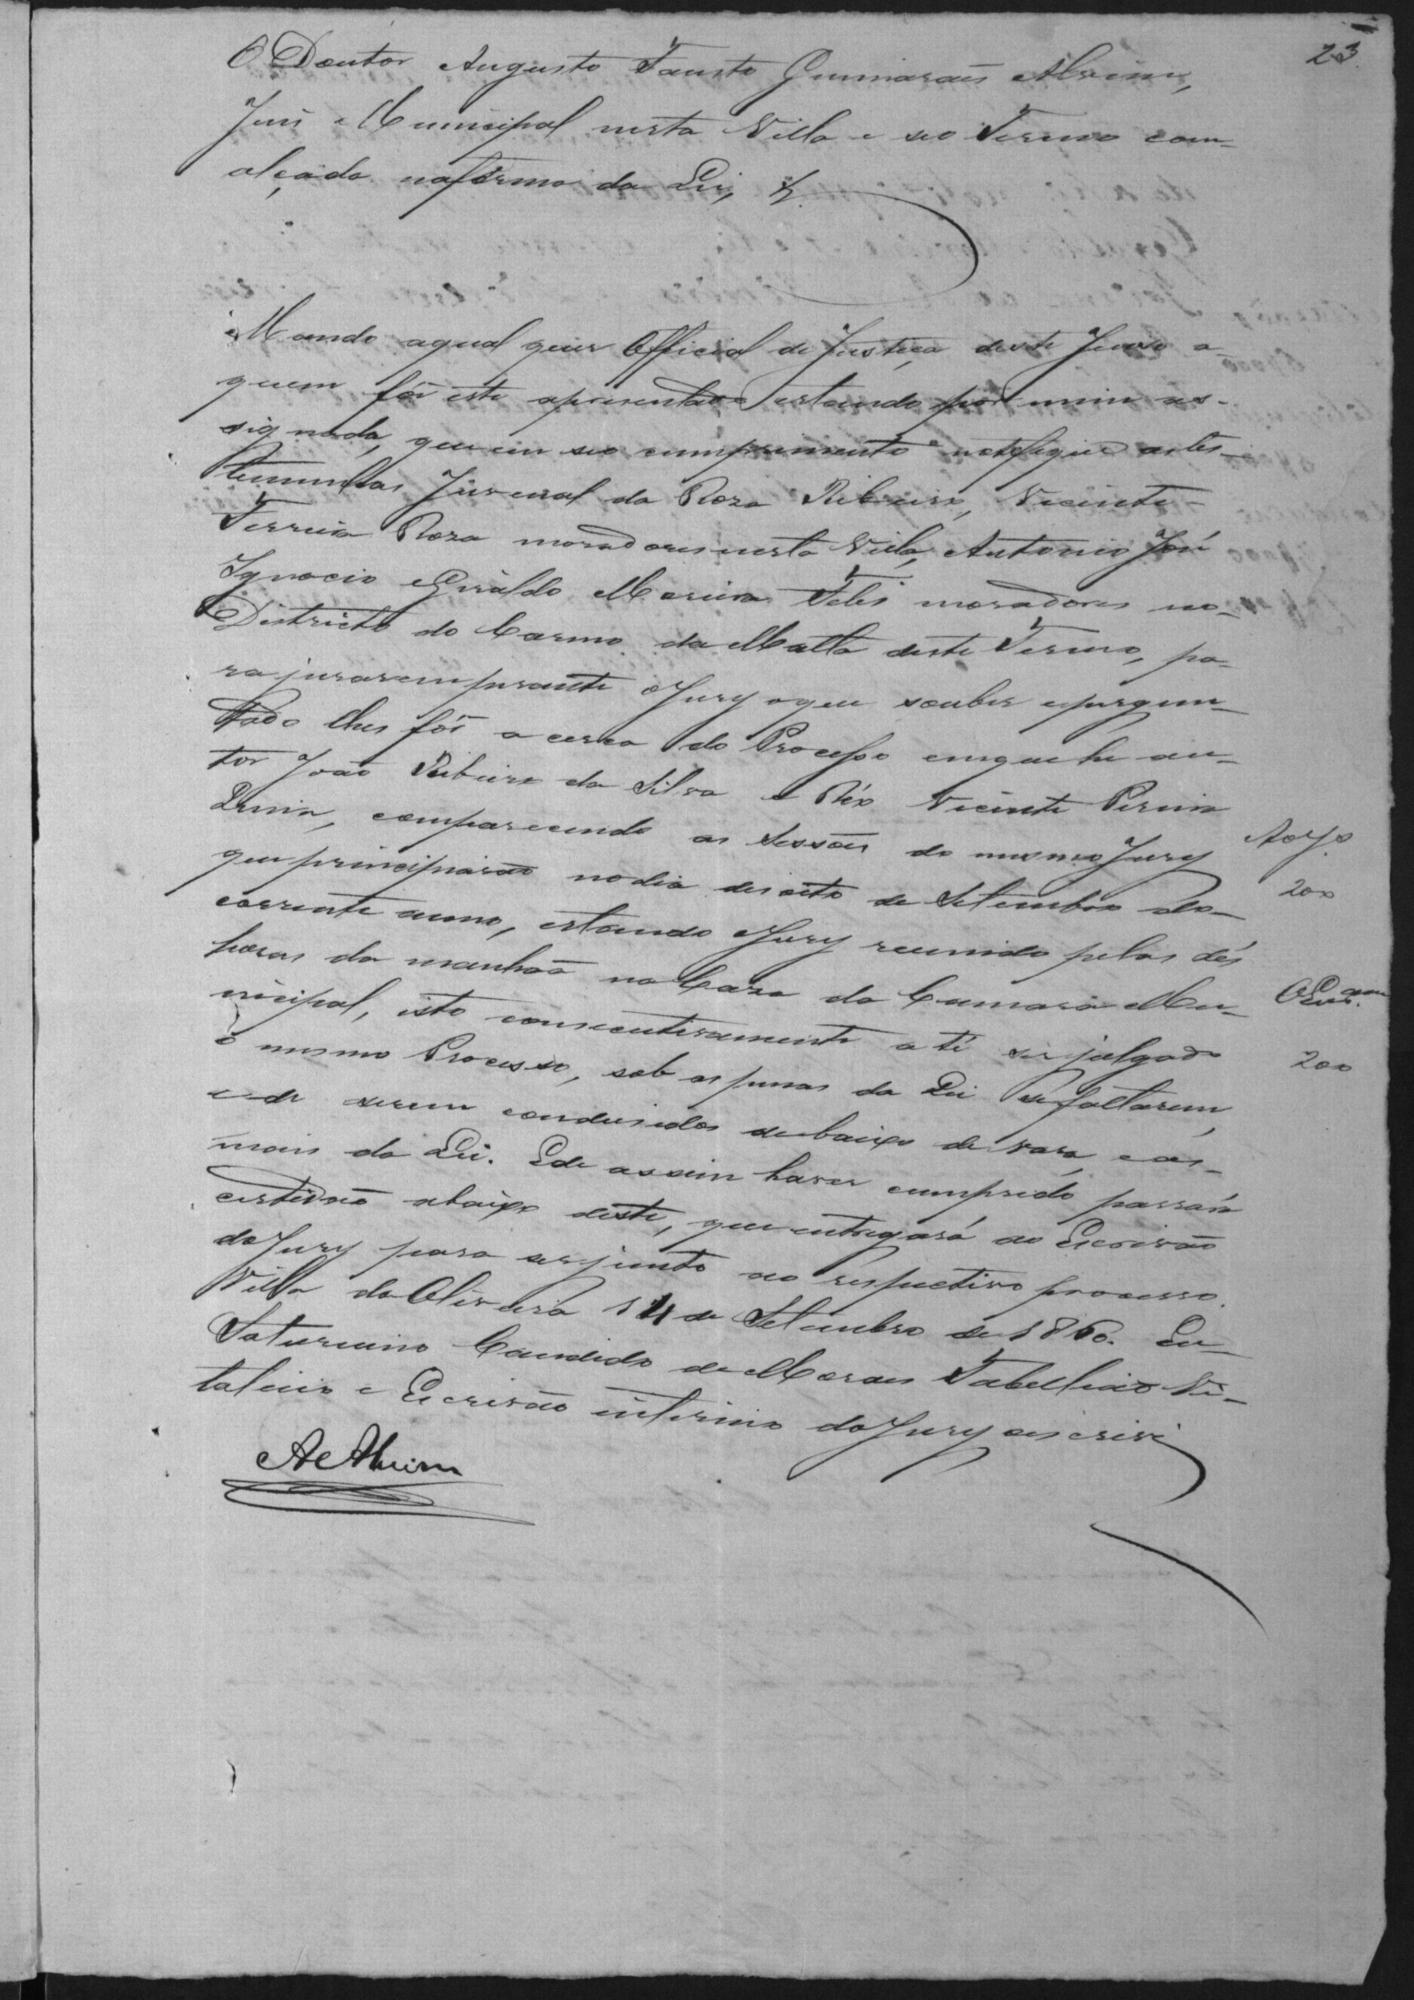 23
O Doutor Augusto Fausto Guimaraẽs Alvim,
Juis Municipal nesta Villa e seo Termo com-
alçada naforma da Lei, &.
Mando aqual quer Official de Justiça deste Juiso a
quem fôr este apresentado estando por mim as-
signado, que em seo cumprimento notefique astes-
temunhas Juvenal da Roza Ribeiro, Vicente
Ferreira Roza moradores nesta Villa, Antonio José
Ignacio e Giraldo Moreira Teles moradores no
Districto do Carmo da Matta deste Termo, pa-
ra jurarem perante o Jury oque souber epergun-
tado lhes fôr a cerca do Processo emque he au-
tor João Ribeiro da Silva e Réo Vicente Pereira
comparecendo as Sessões do mesmo Jury
que principiarão nodia desoito de Setembro do
corrente anno, estando oJury reunido pelas dés
horas da manhaã na Caza da Camara Mu-
nicipal, isto consecutivamente a té ser julgado
o mesmo Processo, sob as penas da Lei sefaltarem,
e de serem condusidos debaixo de vara, e as
mais da Lei. Ede assim haver cumprido passará
certidaõ abaixo deste, que entregará ao Escrivão
do Jury para ser junto ao respectivo processo.
Villa da Oliveira 14 de Setembro de 1860. Eu
Saturnino Candido de Moraes Tabelliaõ Vi-
talicio e Escrivão interino do Jury oescrivi
A Alvim
200
200